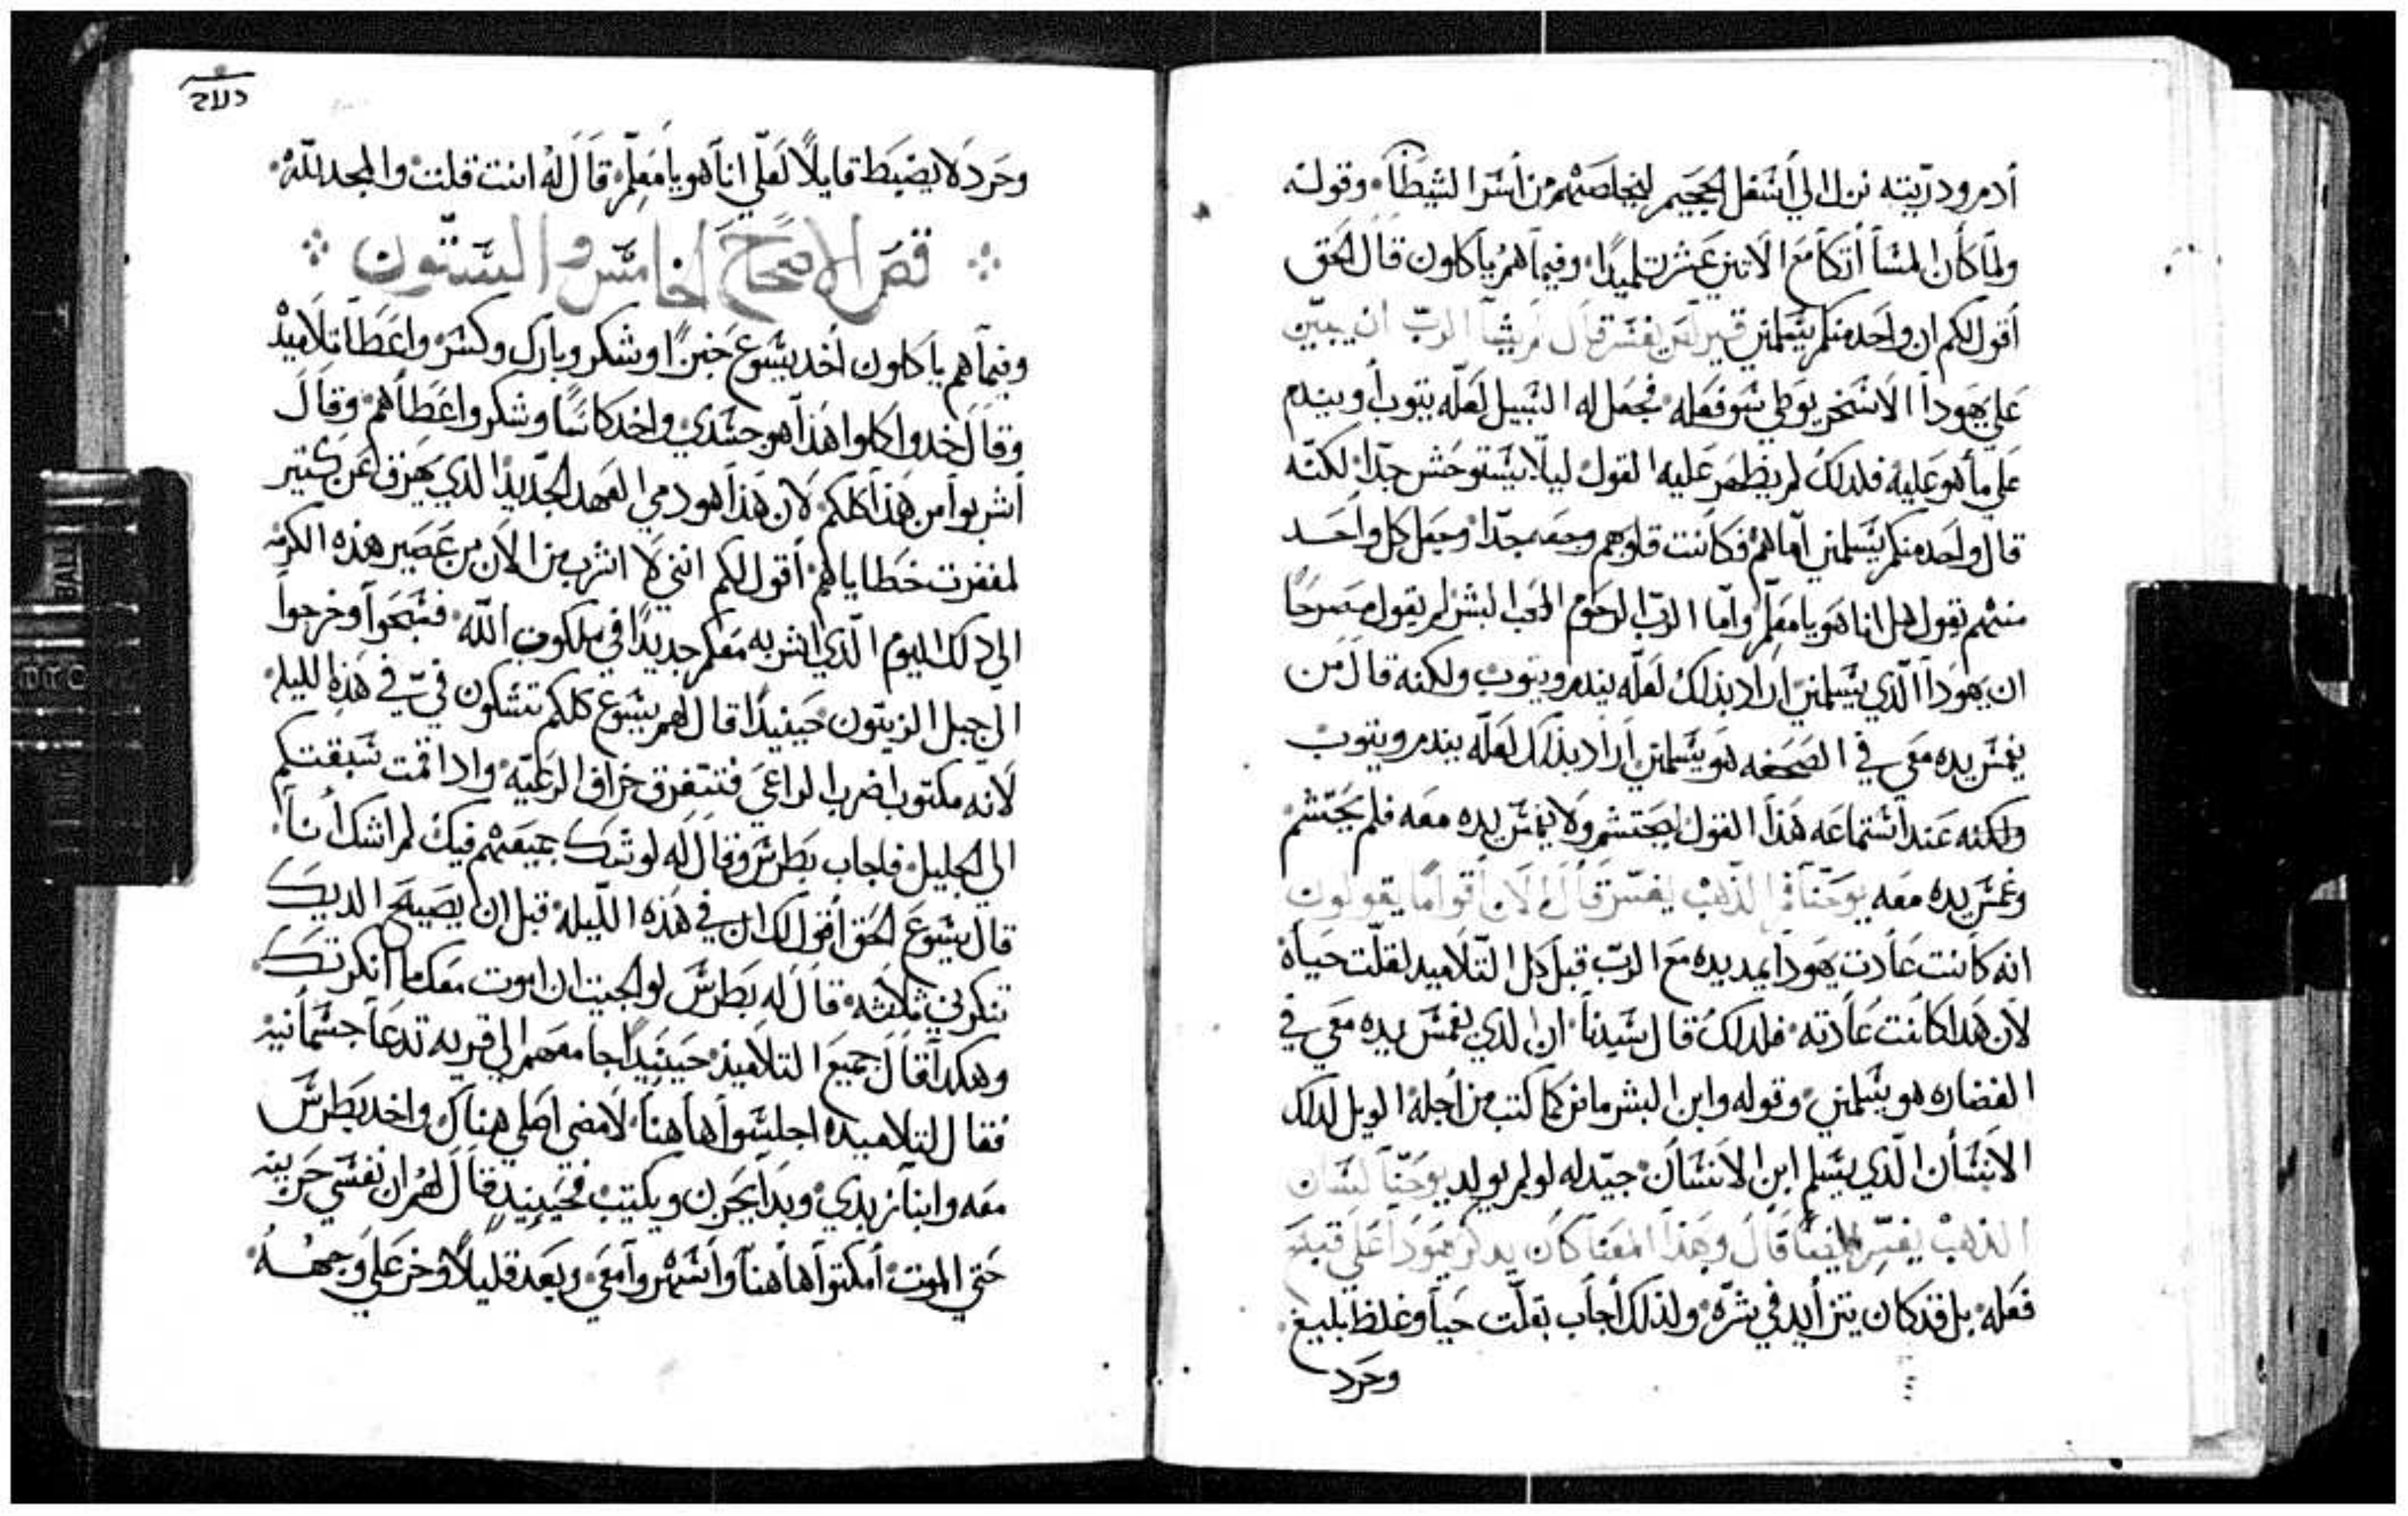 أدم ودريته نزل الي أشفل الجحيم ليخلصهم من أشر الشيطان وقوله
ولما كان المسا أتكا مع الاتني عشر تلميدا وفيما هم ياكلون قال الحق
أقول لكم ان واحد منكم يسلمني قيرلص يفسر قال لم يشا الرب ان يبين
علي يهودا الاسخريوطي سو فعله فجعل له السبيل لعله يتوب أو يندم
علي ما هو عليه فلدلك لم يظهر عليه القول ليلا يستوحش جدا لكنه
قال واحد منكم يسلمني اما هم فكانت قلوبهم وجعه جدا وجعل كل واحد
منهم يقول هل انا هو يا معلم وأما الرب الرحوم المحب البشر لم يقول مصرحا
ان يهودا الذي يسلمني اراد بذلك لعله يندم ويتوب ولكنه قال من
يغمس يده معي في الصحفه هو يسلمني أراد بذلك لعله يندم ويتوب
ولكنه عند استماعه هذا القول يحتشم ولا يغمس يده معه فلم يحتشم
وغمس يده معه يوحنا فم الذهب يفسر قال لان أقواما يقولون
انه كانت عادت يهودا يمد يده مع الرب قبل كل التلاميد لقلت حياه
لان هدا كانت عادته فلدلك قال سيدنا ان الدي يغمس يده معي في
الغضاره هو يسلمني وقوله وابن البشر ماض كما كتب من أجله الويل لدلك
الانسان الذي يسلم ابن الانسان جيد له لو لم يولد يوحنا لسان
الذهب يفسر ايضا قال وبهذا المعنا كان يدكر يهودا علي قبح
فعله بل قد كان يتزايد في شره ولذلك أجاب بقلت حيا وغلظ بليغ
وحرد
دلاح
وحرد لا يضبط قايلا لعلي انا هو يا معلم قال له انت قلت والمجد لله
قص الاصحاح الخامس والستون
وفيما هم ياكلون أخد يسوع خبزا وشكر وبارك وكسر واعطا تلاميذه
وقال خدوا كلوا هذا هو جسدي واخد كاسا وشكر واعطاهم وقال
أشربوا من هذا كلكم لان هذا هو دمي العهد الجديد الذي يهرق عن كتير
لمغفرت خطاياهم أقول لكم انني لا اشرب من الان من عصير هذه الكرمه
الي دلك اليوم الذي اشربه معكم جديدا في ملكوت الله فسبحوا وخرجوا
الي جبل الزيتون حينيدا قال لهم يسوع كلكم تشكون في في هذه الليله
لانه مكتوب اضرب الراعي فتتفرق خراف الرعيه وادا قمت سبقتكم
الي الجليل فاجاب بطرس وقال له لو شك جميعهم فيك لم اشك أنا
قال يسوع الحق أقول لك ان في هذه الليله قبل ان يصيح الديك
تنكرني ثلاثه قال له بطرس لو الجيت ان اموت معك ما أنكرتك
وهكدا قال جميع التلاميذ حينيدا جا معهم الي قريه تدعا جسمانيه
فقال لتلاميده اجلسوا هاهنا لامضي اصلي هناك واخد بطرس
معه وابنا زبدي وبدا يحزن ويكتيب فحينيد قال لهم ان نفسي حزينه
حتي الموت أمكتوا هاهنا وأسهروا معي وبعد قليلا وخر علي وجهه